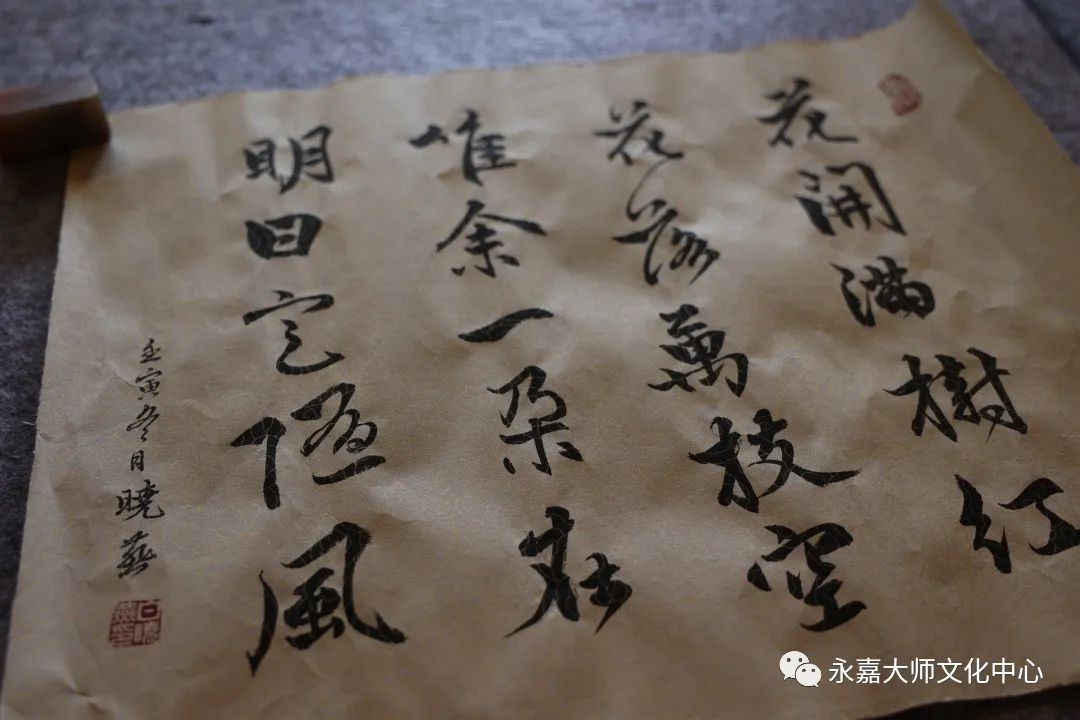 花開滿樹紅
花落萬枝空
唯余一朵在
明日定随風
壬寅冬月曉燕
永嘉大师文化中心